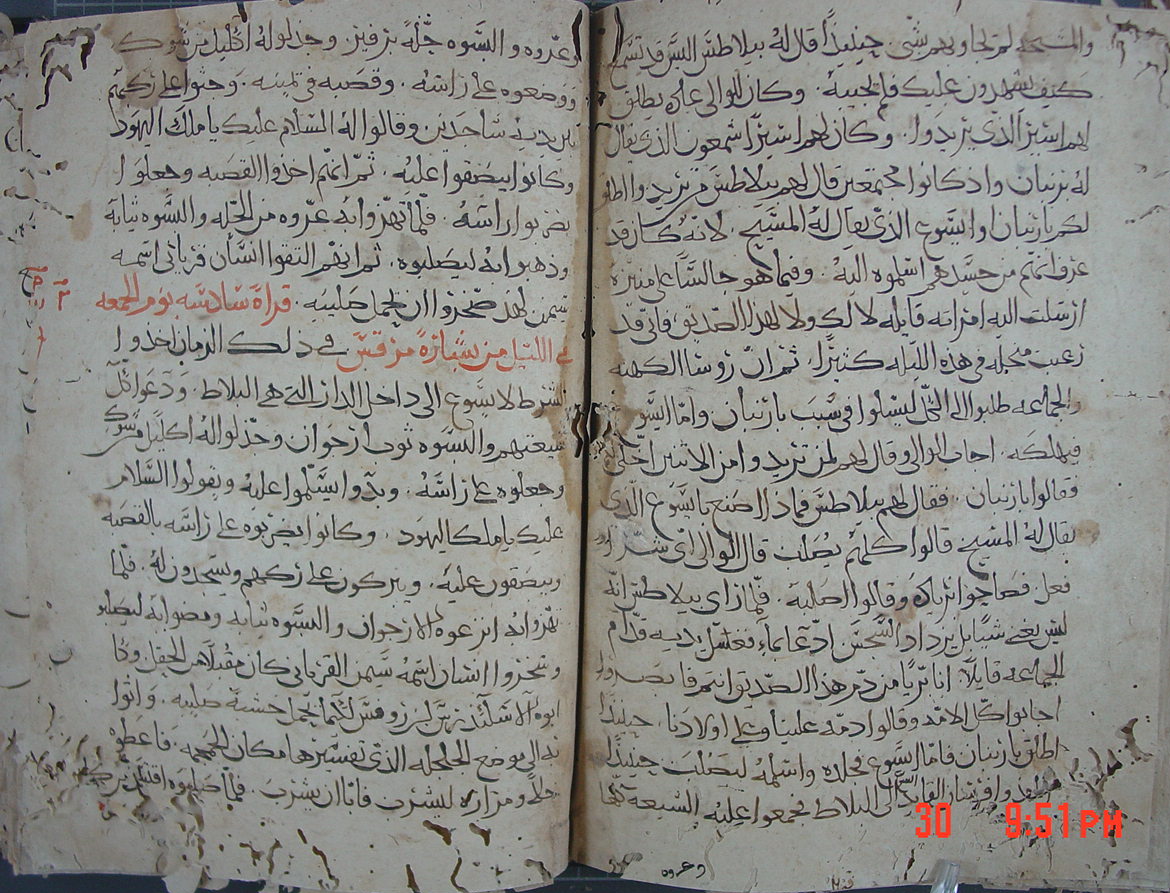 والمشيحه لم تجاوبهم بشي حينيذًا قال له بيلاطس اليس قد تسمع
كيف يشهدون عليك فلم يجيبه . وكان الوالي عاده يطلق
لهم اسير الذي يريدوا . وكان لهم اسيرًا شمعون الذي يقال
له برنبان واذ كانوا مجتمعين قال لهم بيلاطس من تريدوا اطلق
لكم بارنبان او ايسوع الذي يقال له المسيح . لانه كان قد
عرف انهم من حسدهم اسلموه اليه . وفيما هو جالسًا على منبره
ارسلت اليه امراته قايله لا لك ولا لهذا الصديق فاني قد
تعبت منجله في هذه الليله كثيرًا . ثم ان روسا الكهنه
والجماعه طلبوا الى الكل ليسلوا في سبب بارنبان واما ايسوع
فيهلكه . اجاب الوالي وقال لهم لمن تريدوا من الاثنين اخلي
فقالوا بارنبان . فقال لهم بيلاطس فماذا اصنع بايسوع الذي
يقال له المسيح قالوا كلهم يصلب قال الوالي اي شر
فعل . فصاحوا وقالوا اصلبه . فلما راى بيلاطس انه
ليس يغني شيًا بل يزداد السجس ادعا بماء فغسل يديه قدام
الجماعه قايلًا انا بريًا من دم هذا الصديق انتم
اجابوا كل الامه وقالوا دمه علينا وعلى اولادنا . حينيذًا
اطلق بارنبان فاما ايسوع فجلده واسلمه ليصلب حينيذًا
الى البلاط فجمعوا عليه الشيعه كلها
وعروه
وعروه والبسوه حله برفير . وجدلوا له اكليل من شوك
ووضعوه على راسه . وقصبه في يمينه . وجثوا على ركبهم
بين يديه ساجدين وقالوا له السلام عليك يا ملك اليهود
وكانوا يبصقوا عليه . ثم انهم اخذوا القصبه وجعلوا
يضربوا راسه . فلما تهزوا به عروه من الحله والبسوه ثيابه
وذهبوا به ليصلبوه . ثم انهم التقوا انسان قرياني اسمه
سيمن لهذا سخروا ان يحمل صليبه . قراة سادسه يوم الجمعه
في الليل من بشارة مرقس في ذلك الزمان اخذوا
الشرط لايسوع الى داخل الدار التي هي البلاط . ودعوا كل
شيعتهم والبسوه ثوب ارجوان وجدلوا له اكليل من شوك
وجعلوه على راسه . وبدوا يسلموا عليه ويقولوا السلام
عليك يا ملك اليهود . وكانوا يضربوه على راسه بالقصبه
ويبصقون عليه . ويبركون على ركبهم ويسجدون له . فلما
تهزوا به انزعوه الارجوان والبسوه ثيابه ومضوا به ليصلب
وسخروا انسان اسمه سيمن القرياني كان مقبلًا من الحقل
ابو الاسكندروس لروفس لكيما يحمل خشبة صليبه . واتوا
به الى موضع الجلجله الذي تفسيرها مكان الجمجمه . فاعطوه
خل ومراره ليشرب فابا ان يشرب . فلما صلبوه
30 9:51PM